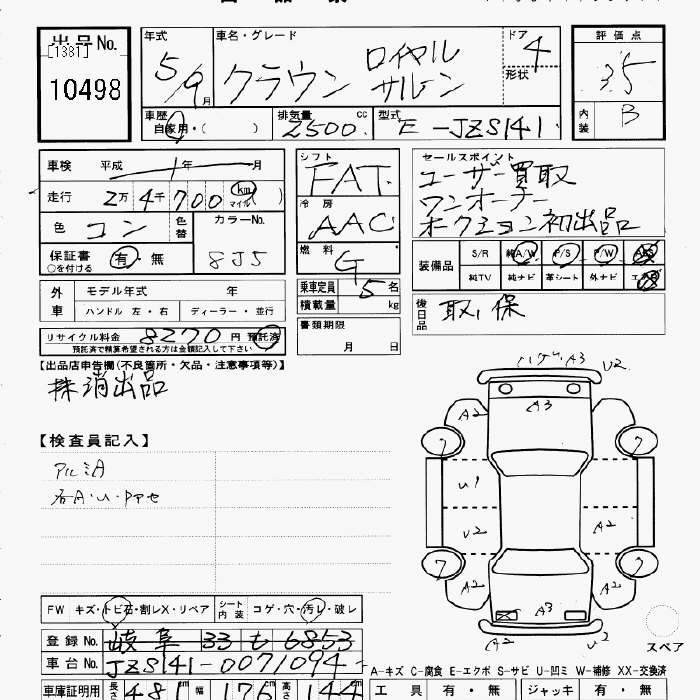 出品No. [1381] 10498
年式 5/9月
車名・グレード クラウン ロイヤル サルーン
ドア 4
形状
評価点 3.5
内装 B
車歴 自家用・( )
排気量 2500 cc
型式 E-JZS141
車検 平成 年 月
走行 2万4千700 km マイル ( )
色 コン 色替
カラーNo. 8J5
保証書 有・無
○を付ける
外車 モデル年式 年
ハンドル 左・右 ディーラー・並行
リサイクル料金 8270 円 預託済
預託済で精算希望される方は金額記入して下さい
シフト FAT
冷房 AAC
燃料 G
乗車定員 5 名
積載量 kg
書類期限
月 日
セールスポイント
ユーザー買取
ワンオーナー
オークション初出品
装備品 S/R 純A/W P/S P/W ABS
純TV 純ナビ 革シート 外ナビ エアB
後日品 取、保
【出品店申告欄(不良箇所・欠品・注意事項等)】
抹消出品
【検査員記入】
アルミA
各A・U・Pアセ
ハゲ A3 U2
A2 A3
7 7
U1
U2 A2
7 7
A2 A2
A3
A2 U2
スペア
FW キズ・トビ石・割レX・リペア シート内装 コゲ・穴・汚レ・破レ
登録No. 岐阜 33 も 6853
車台No. JZS141-0071094
A-キズ C-腐食 E-エクボ S-サビ U-凹ミ W-補修 XX-交換済
車庫証明用 長さ 481 cm 幅 176 cm 高さ 144 cm
工具 有・無 ジャッキ 有・無